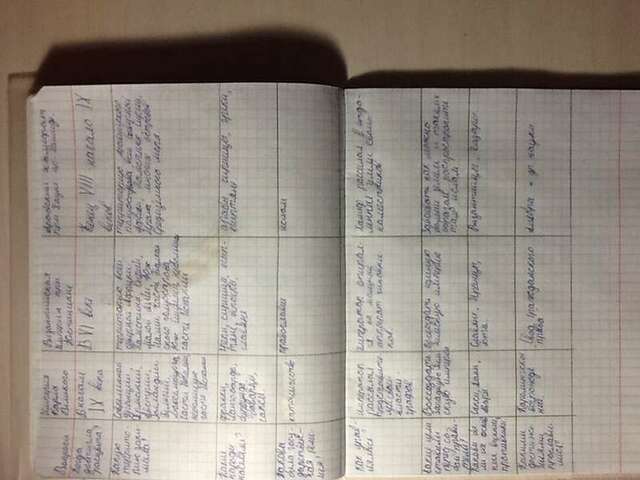 Вопросы
Империя
Карла
Великого
Византийская
империя при
Юстиниане
Арабский халифат
при Харун ар-Рашид.
Когда
достигла
расцвета?
В начале
IX века
В VI веке
Конец VIII начало IX
веков
Какую
террито-
рию зани-
мала?
Современной
Франции,
Германии,
Австрии,
Голландии
Бельгии
Люксембурга,
часть Италии,
небольшую
часть Испании
территорию всей
северной Африки,
Палестина, Сирии,
Малой Азии, вся
Италия, часть Балкан
ского полуострова,
Юж небольшая
часть Испании
Территорию Аравийского
полуострова, вся северной
Африки Палестину, Сирии,
Ирана многие острова
Средиземного моря.
Какие
народы
населяли?
франки,
лангобарды,
бургунды
бавары,
саксы.
Греки, сирийцы, егип-
тяне,
славяне
арабы сирийцы, греки,
египтяне
Какова
была госу-
дарствен-
ная рели-
гия?
католичество
православие
ислам
Как управ
лялись?
император
рассылал
представите-
лей своей
власти
графов
император опирал-
ся на мощный
аппарат чиновни
ков.
Халиф рассылал в отда-
ленные земли своих
наместников
Какие цели
ставили
перед со-
бой прави-
тели?
Воссоздать
Западную Рим
скую империю
воссоздать единую
Римскую империю
Завоевать как можно
больше земель и таким
образом распространить
там ислам!
Каковы бы-
ли их основ
ные внешние
противники
Саксы,
авары
Славяне, Иранцы,
готы.
Византийцы, хазары
Какими
достиже-
ниями
прослави-
лись?
Каролингское
возрожде
ние.
Свод гражданского
права
алгебра и др науки